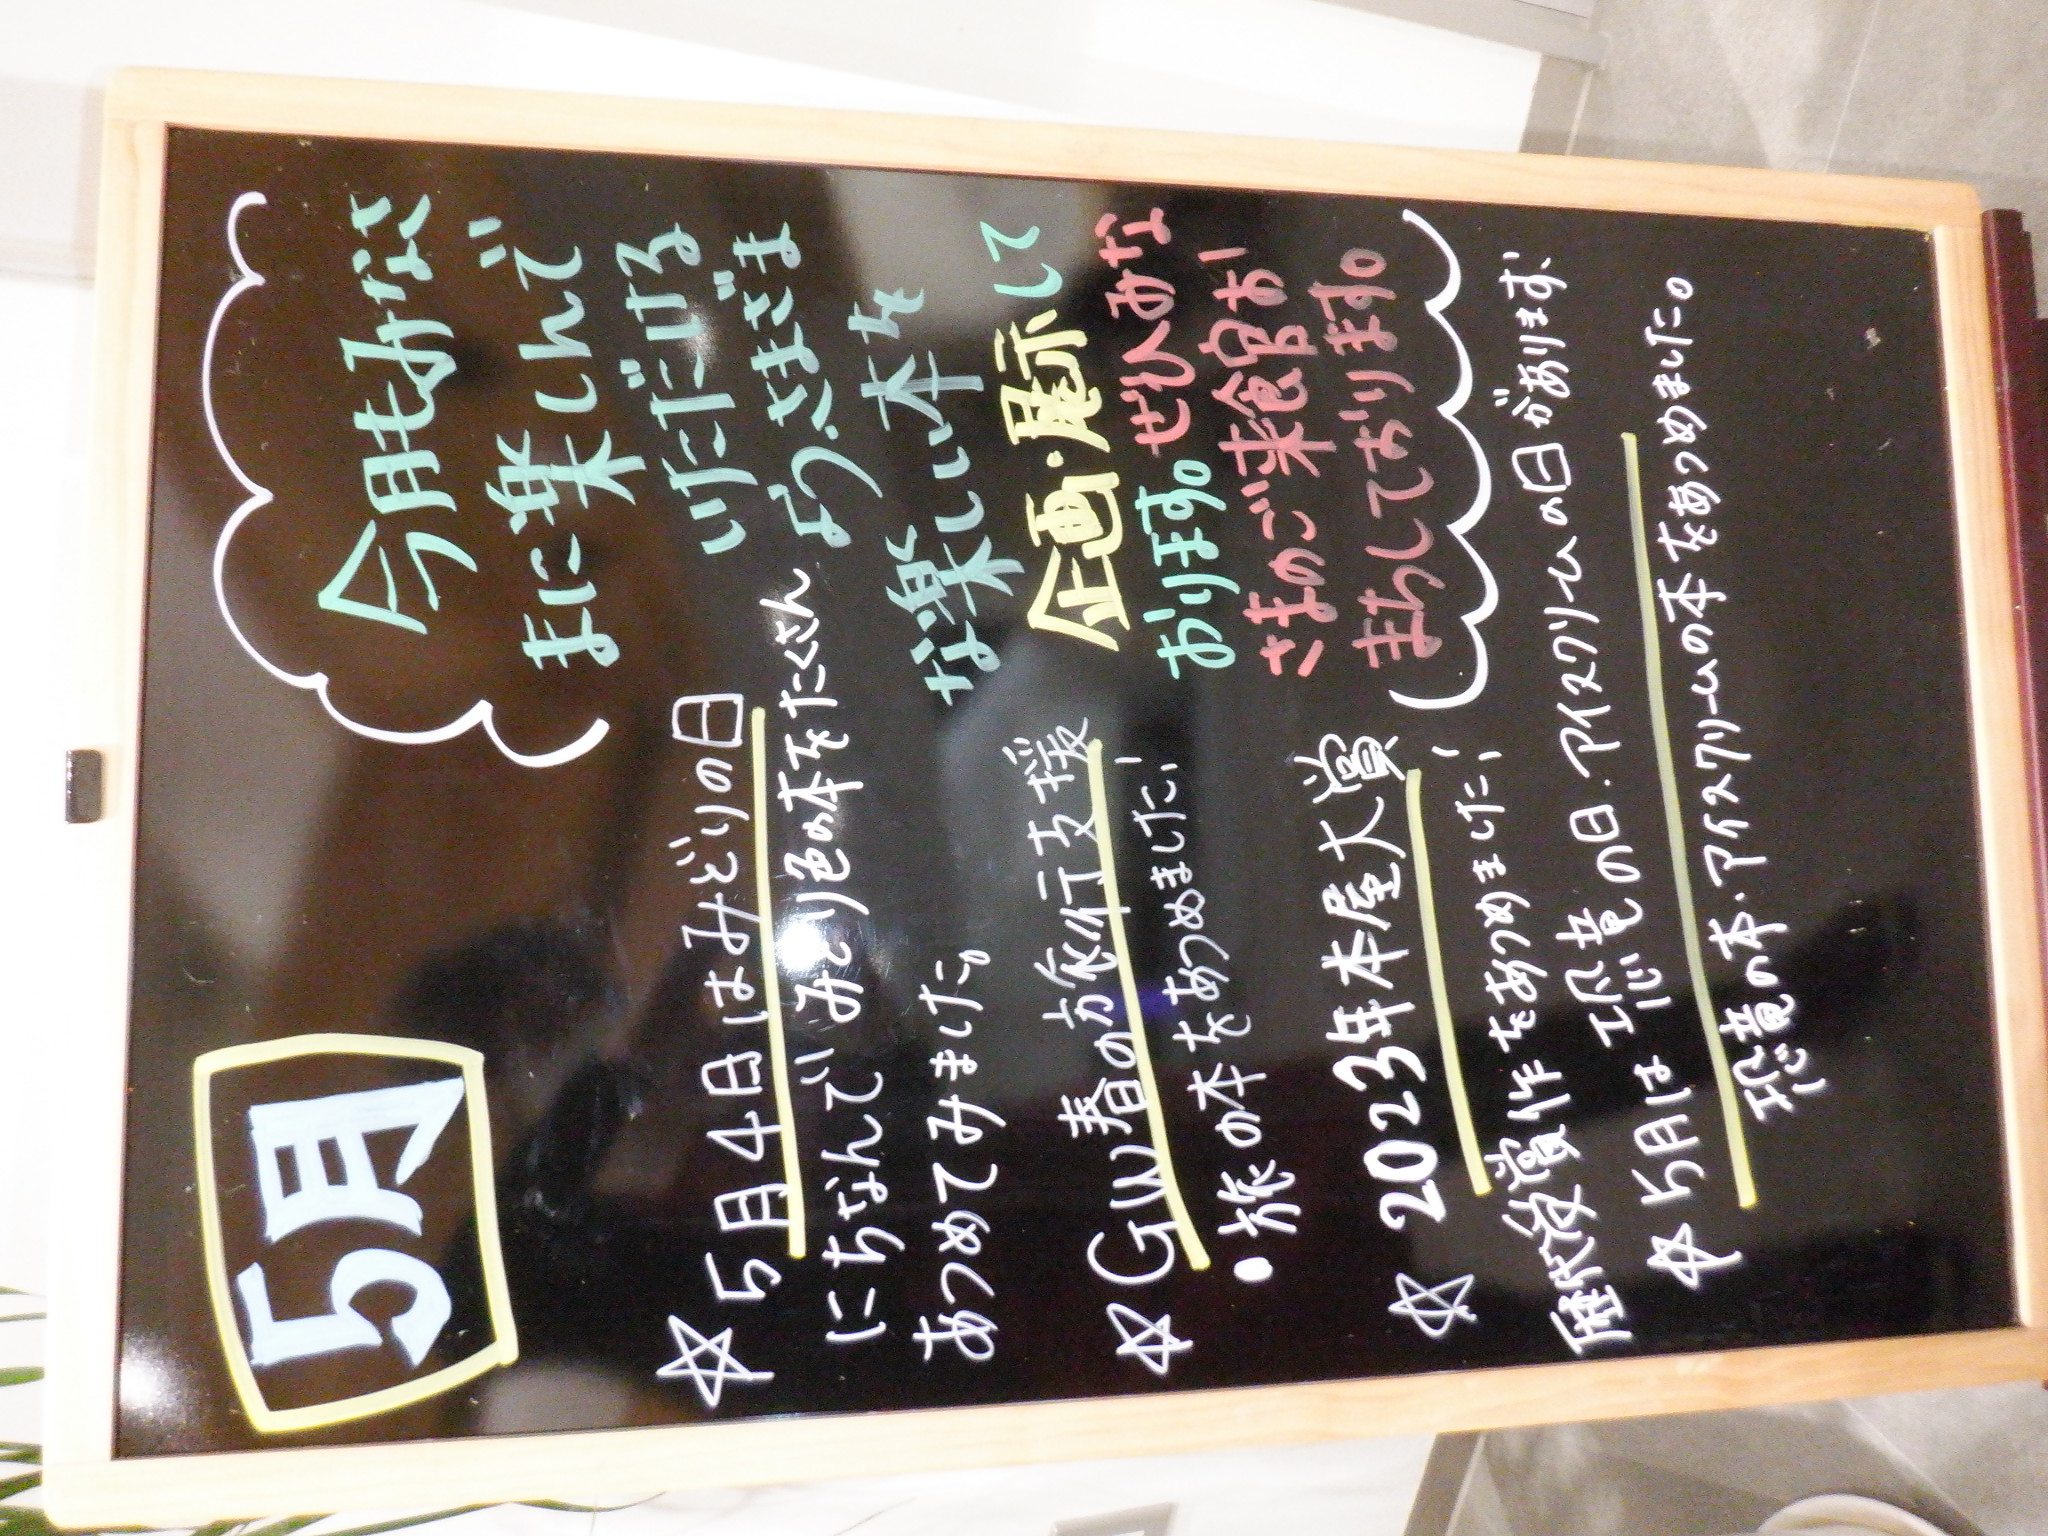 5月
☆5月4日はみどりの日
にちなんで みどり色の本をたくさん
あつめてみました。
☆GW春のお旅行支援
・旅の本をあつめました!
☆2023年本屋大賞
歴代受賞作をあつめました!
☆5月は 恐竜の日・アイスクリームの日があります。
恐竜の本・アイスクリームの本をあつめました。
今月もみなさ
まに楽しんで
いただける
よう、さまざま
な楽しい本を
企画・展示して
おります。ぜひみな
さまのご来館お
まちしております。